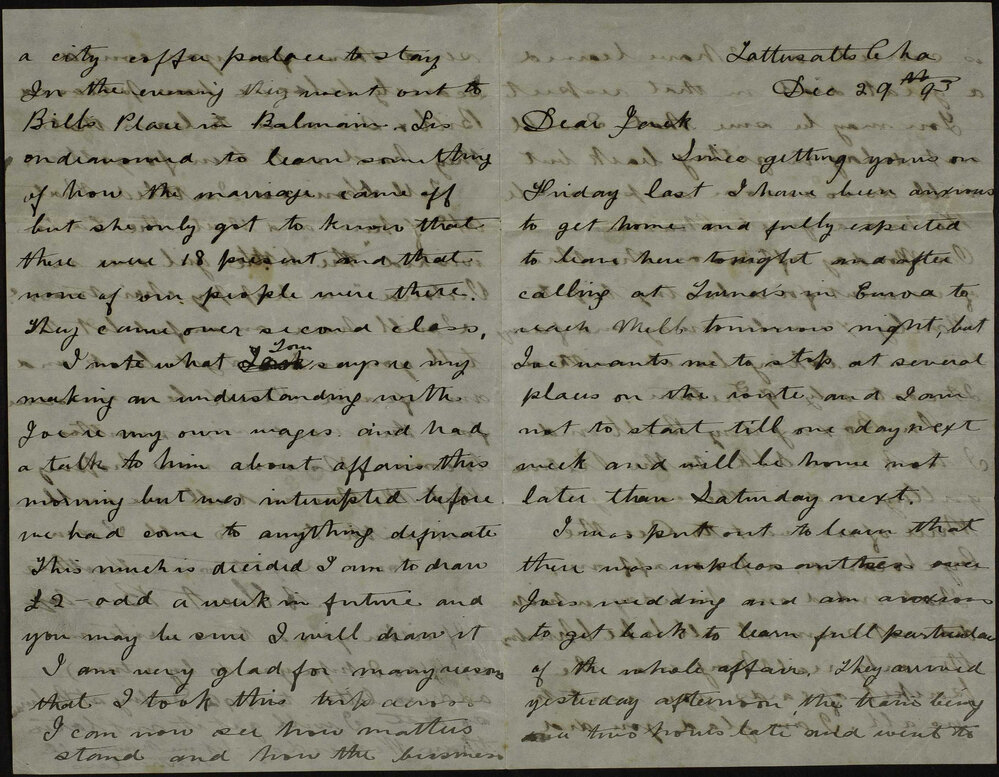 Tattersalls Cha
Dec 29th 93
Dear Jack
Since getting yours on
Friday last I have been anxious
to get home and fully expected
to leave here tonight and after
calling at Turners in Euroa to
reach Melb tomorrow night, but
Joe wants me to stop at several
places on the route and I am
not to start till one day next
week and will be home not
later than Saturday next.
I was put out to learn that
there was unpleasantness over
Joes wedding and am anxious
to get back to learn full particulars
of the whole affair. They arrived
yesterday afternoon, the train being
two hours late and went to
a city coffee palace to stay
In the evening they went out to
Bills Place in Balmain. Sis
endeavoured to learn something
of how the marriage came off
but she only got to know that
there were 18 present and that
none of our people were there.
They came over second class,
I note what Tom says re my
making an understanding with
Joe re my own wages and had
a talk to him about affairs this
morning but was interupted before
we had come to anything definate
This much is decided I am to draw
£2-odd a week in future and
you may be sure I will draw it
I am very glad for many reasons
that I took this trip across
I can now see how matters
stand and how the business